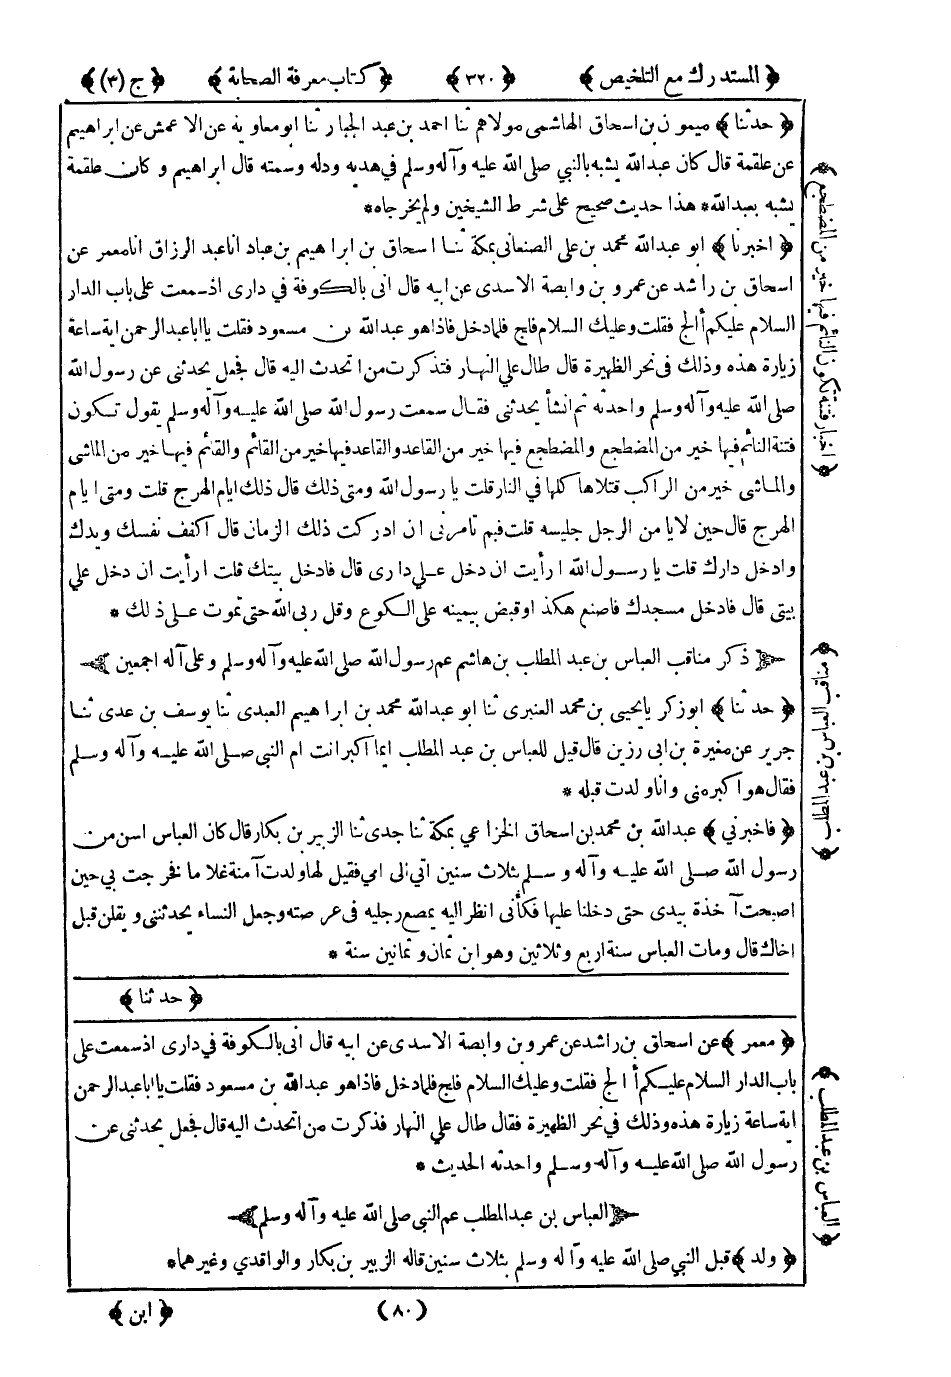 ﴿ المستدرك مع التلخيص ﴾ ﴿ ٣٢٠ ﴾ ﴿ كتاب معرفة الصحابة ﴾ ﴿ ج (٣) ﴾
﴿ حدثنا ﴾ ميمون بن اسحاق الهاشمى مولاهم ثنا احمد بن عبد الجبار ثنا ابو معاوية عن الاعمش عن ابراهيم
عن علقمة قال كان عبدالله يشبه بالنبي صلى الله عليه وآله وسلم في هديه ودله وسمته قال ابراهيم وكان علقمة
يشبه بعبدالله * هذا حديث صحيح على شرط الشيخين ولم يخرجاه *
﴿ اخبرنا ﴾ ابو عبدالله محمد بن على الصنعانى بمكة ثنا اسحاق بن ابراهيم بن عباد انا عبد الرزاق انا معمر عن
اسحاق بن راشد عن عمرو بن وابصة الاسدى عن ابيه قال انى بالكوفة في دارى اذ سمعت على باب الدار
السلام عليكم أألج فقلت وعليك السلام فلج فلما دخل فاذا هو عبدالله بن مسعود فقلت يا اباعبدالرحمن اية ساعة
زيارة هذه وذلك في نحر الظهيرة قال طال علي النهار فتذكرت من اتحدث اليه قال فجعل يحدثنى عن رسول الله
صلى الله عليه وآله وسلم واحدثه ثم انشأ يحدثنى فقال سمعت رسول الله صلى الله عليه وآله وسلم يقول تكون
فتنة النائم فيها خير من المضطجع والمضطجع فيها خير من القاعد والقاعد فيها خير من القائم والقائم فيها خير من الماشى
والماشى خير من الراكب قتلاها كلها في النار قلت يا رسول الله ومتى ذلك قال ذلك ايام الهرج قلت ومتى ايام
الهرج قال حين لايا من الرجل جليسه قلت فبم تامرنى ان ادركت ذلك الزمان قال اكفف نفسك ويدك
وادخل دارك قلت يا رسول الله ارأيت ان دخل علي دارى قال فادخل بيتك قلت ارأيت ان دخل علي
بيتى قال فادخل مسجدك فاصنع هكذ اوقبض بيمينه على الكوع وقل ربى الله حتى تموت على ذلك *
ذكر مناقب العباس بن عبد المطلب بن هاشم عم رسول الله صلى الله عليه وآله وسلم وعلى آله اجمعين
﴿ حدثنا ﴾ ابو زكريا يحيى بن محمد العنبرى ثنا ابو عبدالله محمد بن ابراهيم العبدى ثنا يوسف بن عدى ثنا
جرير عن مغيرة بن ابى رزين قال قيل للعباس بن عبد المطلب ايما اكبر انت ام النبي صلى الله عليه وآله وسلم
فقال هو اكبر منى وانا ولدت قبله *
﴿ فاخبرني ﴾ عبدالله بن محمد بن اسحاق الخزاعي بمكة ثنا جدى ثنا الزبير بن بكار قال كان العباس اسن من
رسول الله صلى الله عليه وآله وسلم بثلاث سنين اتي الى امي فقيل لها ولدت آمنة غلاما فخرجت بي حين
اصبحت آخذة بيدى حتى دخلنا عليها فكأنى انظر اليه يمصع رجليه فى عرصته وجعل النساء يحدثننى ويقلن قبل
اخاك قال ومات العباس سنة اربع وثلاثين وهو ابن ثمان وثمانين سنة *
﴿ حدثنا ﴾
﴿ معمر ﴾ عن اسحاق بن راشد عن عمرو بن وابصة الاسدى عن ابيه قال انى بالكوفة في دارى اذ سمعت على
باب الدار السلام عليكم أالج فقلت وعليك السلام فلج فلما دخل فاذا هو عبدالله بن مسعود فقلت يا اباعبدالرحمن
اية ساعة زيارة هذه وذلك في نحر الظهيرة فقال طال علي النهار فذكرت من اتحدث اليه قال فجعل يحدثنى عن
رسول الله صلى الله عليه وآله وسلم واحدثه الحديث *
العباس بن عبدالمطلب عم النبي صلى الله عليه وآله وسلم
﴿ ولد ﴾ قبل النبي صلى الله عليه وآله وسلم بثلاث سنين قاله الزبير بن بكار والواقدي وغيرهما *
﴿ اخبار فتنة تكون النائم فيها خير من المضطجع ﴾
﴿ مناقب العباس بن عبدالمطلب ﴾
﴿ العباس بن عبدالمطلب ﴾
(٨٠) ﴿ ابن ﴾